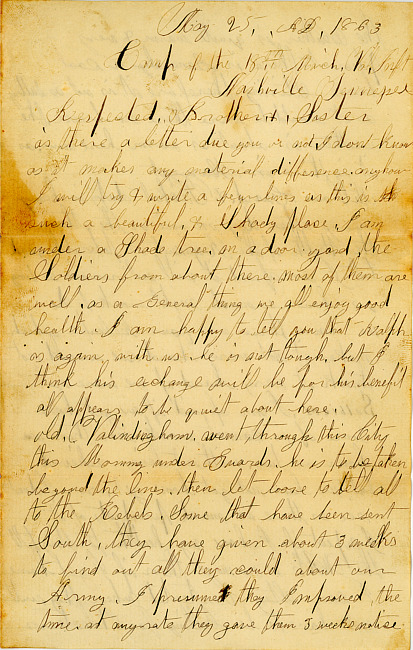 May 25, AD, 1863
Camp of the 18th Mich, V, Inft
Nashville Tennessee
Respected, Brother & Sister
is there a letter due you or not I dont know
as it makes any material difference anyhow
I will try & write a few lines as this is
such a beautiful, & Shady place, I am
under a Shade tree, in a door yard, the
Soldiers from about there most of them are
well, as a General thing we all enjoy good
health. I am happy to tell you that Ralph
is again with us he is not tough, but I
think his exchange will be for his benefit
all appears to be quiet about here.
old, Valindingham, went, through this City
this Morning under Guards. he is to be taken
beyond the lines, then let loose to tell all
to the Rebels. Some that have been sent
South, they have given about 3 weeks
to find out all they could about our
Army. I presume they Improved the
time. at any rate they gave them 3 weeks notise